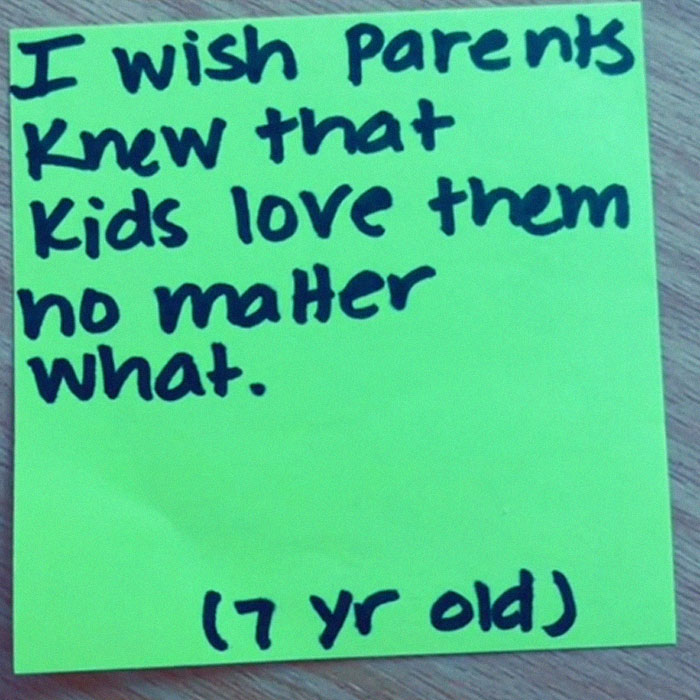 I wish parents
knew that
kids love them
no matter
what.
(7 yr old)